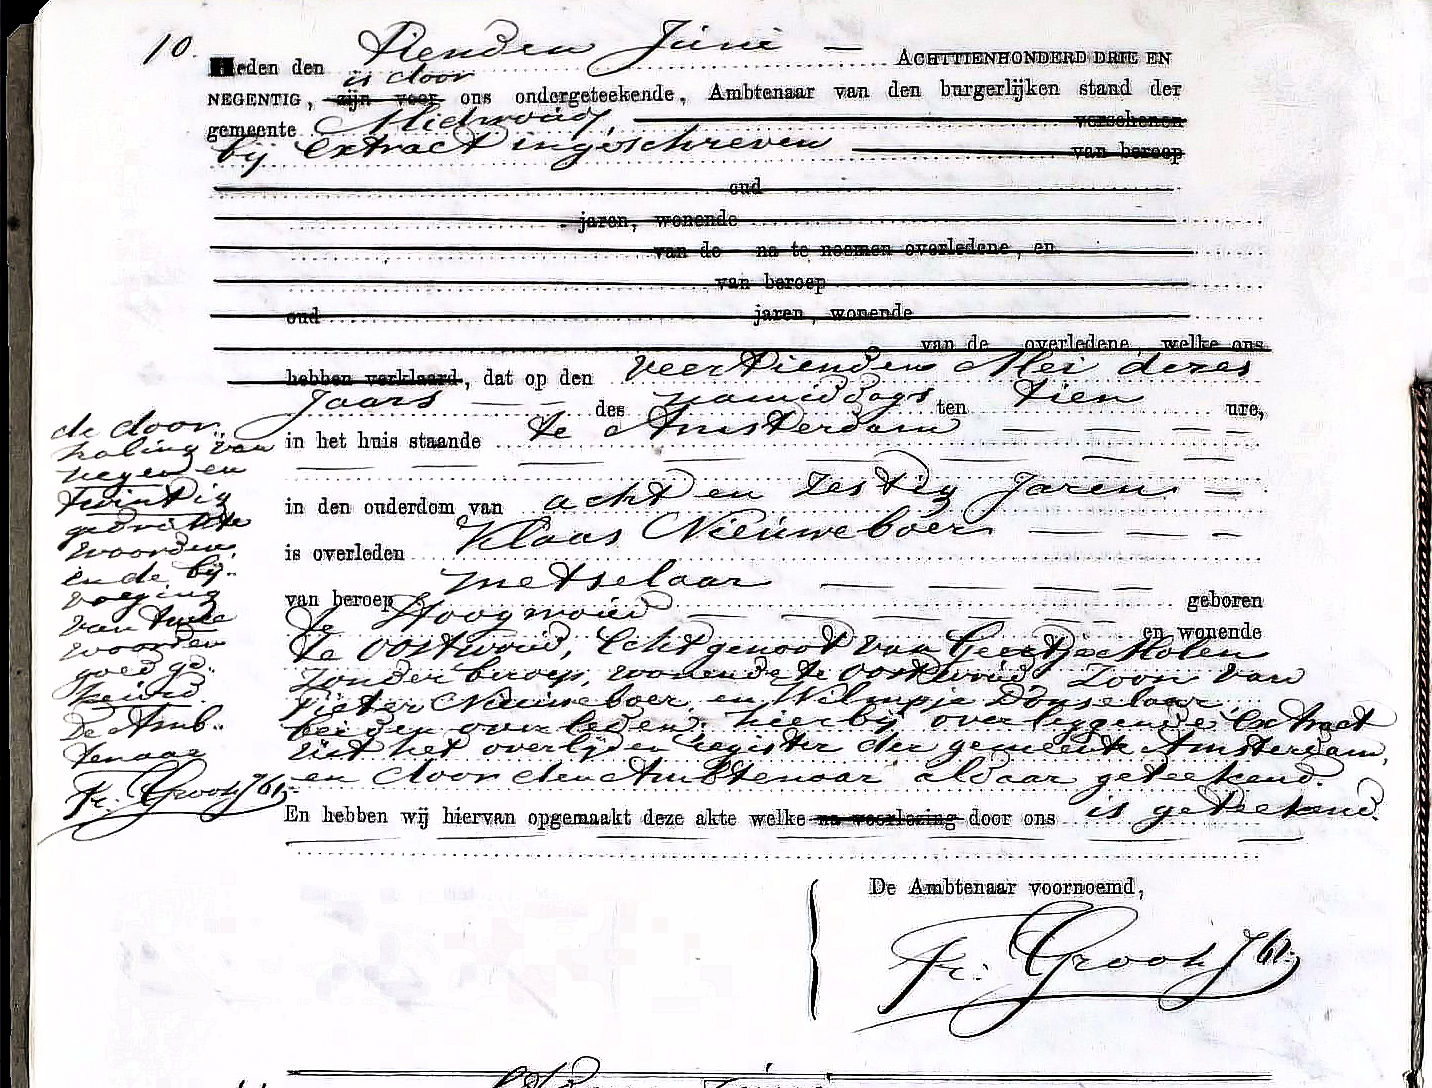 10.
Heden den Tienden Juni — ACHTTIENHONDERD DRIE EN
is door
NEGENTIG, zijn voor ons ondergeteekende, Ambtenaar van den burgerlijken stand der
gemeente Midwoud, verschenen
bij extract ingeschreven van beroep
oud
jaren, wonende
van de na te noemen overledene, en
van beroep
oud jaren, wonende
van de overledene, welke ons
hebben verklaard, dat op den veertienden Mei dezes
Jaars — — des namiddags ten tien ure,
in het huis staande te Amsterdam — — — —
in den ouderdom van acht en zestig Jaren —
is overleden Klaas Nieuweboer — — —
van beroep metselaar — — — geboren
te Hoogwoud — — — — — en wonende
te Oostwoud, Echtgenoot van Geertje Molen
zonder beroep, wonende te Oostwoud, Zoon van
Pieter Nieuweboer en Wilmpje Donselaar,
beiden overleden. hierbij overleggende Extract
uit het overlijden register der gemeente Amsterdam,
en door den Ambtenaar aldaar geteekend.
En hebben wij hiervan opgemaakt deze akte welke na voorlezing door ons is geteekend.
de door-
haling van
negen en
twintig
gedrukte
woorden,
en de bij-
voeging
van twee
woorden
goed ge-
keurd.
De Amb-
tenaar
Fr. Groot Jbz.
De Ambtenaar voornoemd,
Fr. Groot Jbz.